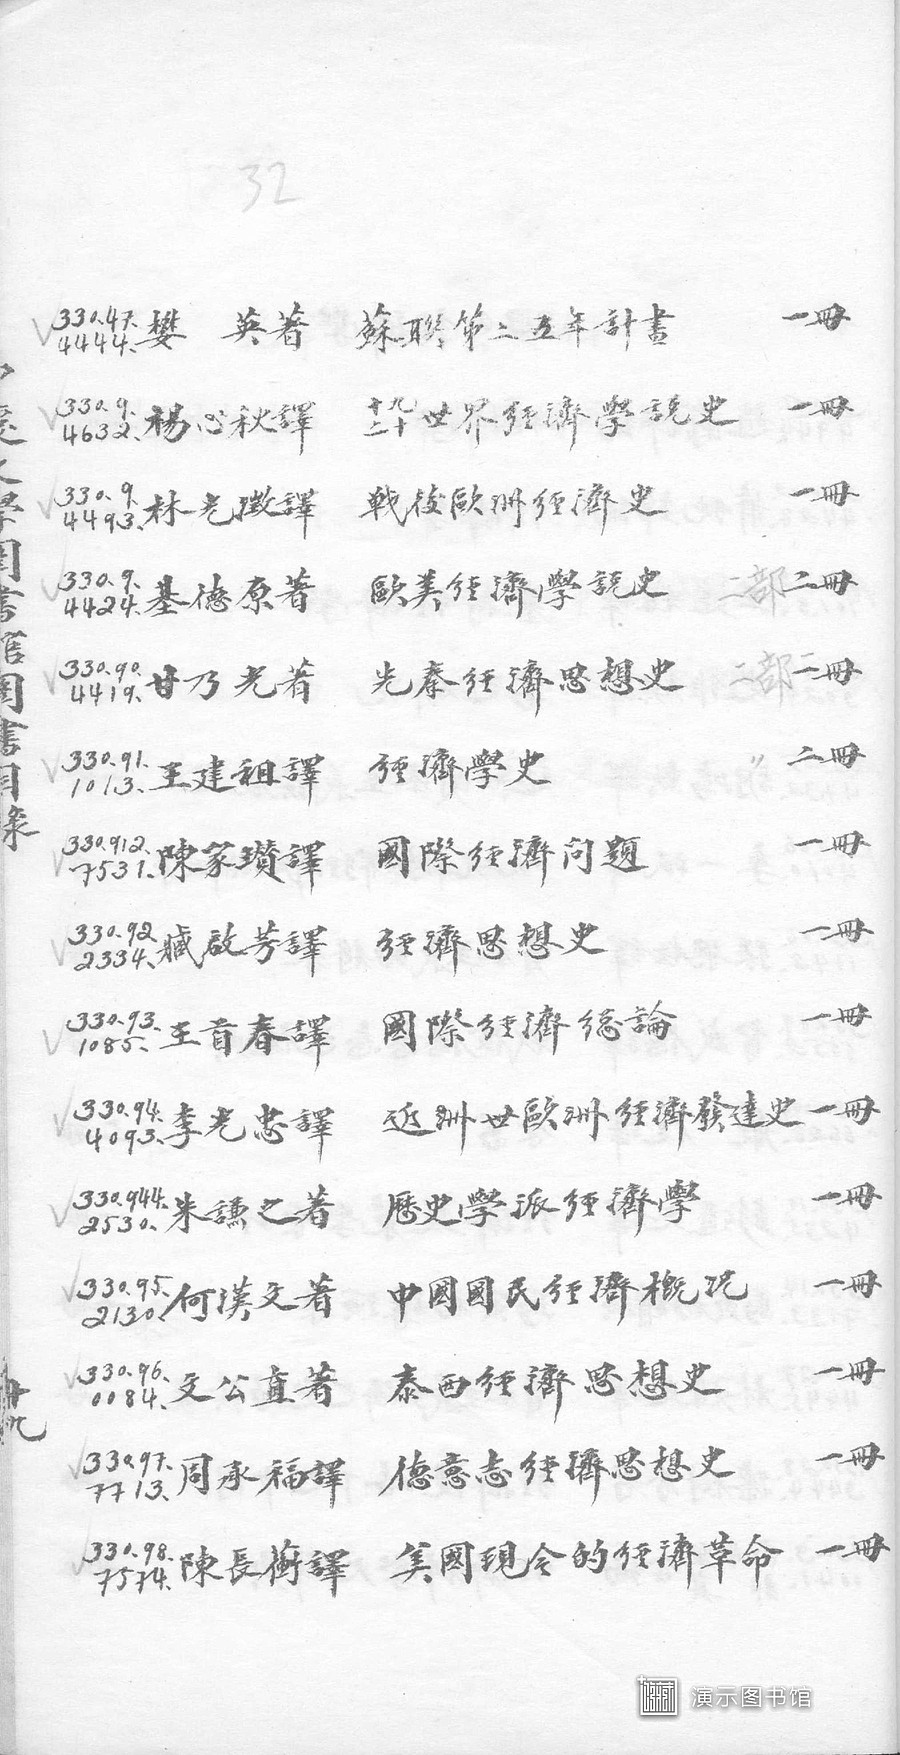 32
330.47. 4444. 樊 英著 蘇聯第二五年計畫 一冊
330.9. 4632. 楊心秋譯 十九二十世界經濟學說史 一冊
330.9. 4493. 林光澂譯 戰後歐洲經濟史 一冊
330.9. 4424. 基德原著 歐美經濟學說史 二部 二冊
330.90. 4419. 甘乃光著 先秦經濟思想史 二部 二冊
330.91. 1013. 王建祖譯 經濟學史 〃 二冊
330.912. 7531. 陳家瓚譯 國際經濟问題 一冊
330.92 2334. 臧啟芳譯 經濟思想史 一冊
330.93. 1085. 王首春譯 國際經濟總論 一冊
330.94. 4093. 李光忠譯 近洲世歐洲經濟發達史 一冊
330.944. 2530. 朱謙之著 歷史學派經濟學 一冊
330.95. 2130. 何漢文著 中國國民經濟概況 一冊
330.96. 0084. 文公直著 泰西經濟思想史 一冊
330.97. 7713. 周承福譯 德意志經濟思想史 一冊
330.98. 7574. 陳長蘅譯 美國現今的經濟革命 一冊
大學圖書館圖書目錄
演示图书馆